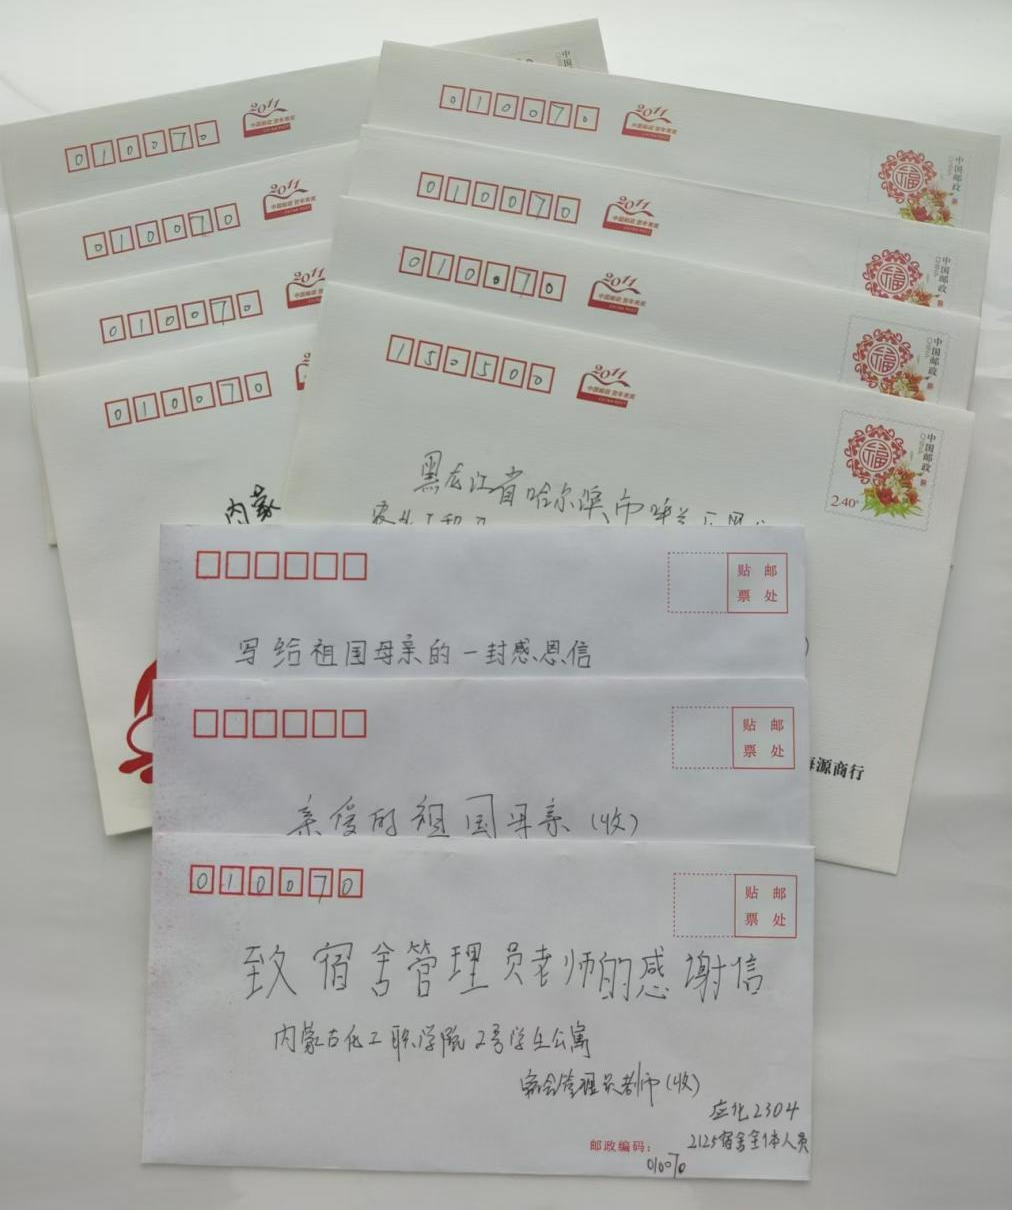 中国
010070
2011
中国邮政 贺年有奖
010070
2011
中国邮政 贺年有奖
010070
2011
010070
内蒙
010070
2011
中国邮政 贺年有奖
中国邮政
福
010070
2011
中国邮政 贺年有奖
中国邮政
福
010070
2011
中国邮政 贺年有奖
中国邮政
福
150500
2011
中国邮政 贺年有奖
中国邮政
福
2.40
黑龙江省哈尔滨市呼兰区
源商行
贴 邮
票 处
写给祖国母亲的一封感恩信
贴 邮
票 处
亲爱的祖国母亲(收)
010070
贴 邮
票 处
致宿舍管理员老师的感谢信
内蒙古化工职学院2号学生公寓
宿舍管理员老师(收)
应化2304
2125宿舍全体人员
邮政编码:
010070